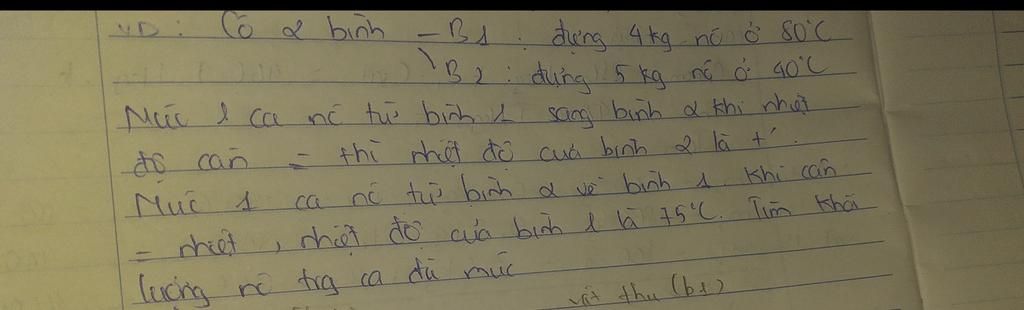 VD: Có 2 bình - B1: đựng 4kg nc ở 80°C
B2: đựng 5kg nc ở 40°C
Múc 1 ca nc từ bình 1 sang bình 2 khi nhiệt
độ cân = thì nhiệt độ của bình 2 là t'.
Múc 1 ca nc từ bình 2 về bình 1. Khi cân
= nhiệt, nhiệt độ của bình 1 là 75°C. Tìm khối
lượng nc trg ca đã múc
vật thu (b1)